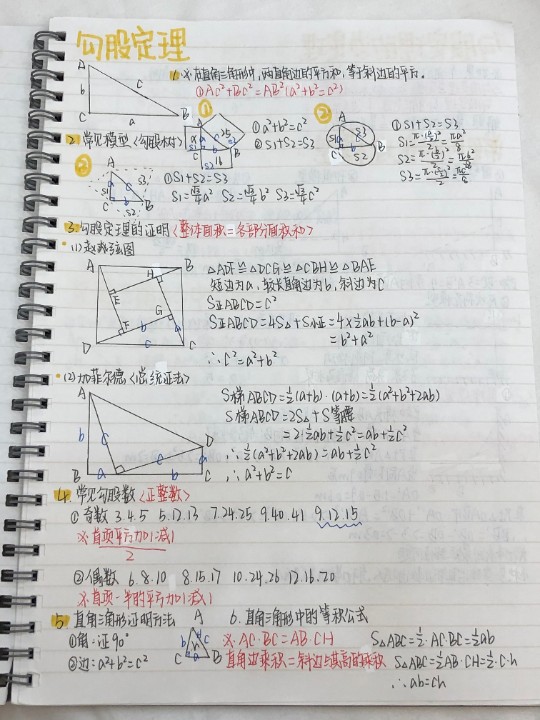 勾股定理
A
b
c
C
a
B
1. ※ 在直角三角形中,两直角边的平方和,等于斜边的平方。
①Ac²+Bc²=AB²(a²+b²=c²)
2. 常见模型〈勾股树〉
①
①a²+b²=c²
②S1+S2=S3
②
①S1+S2=S3
③
①S1+S2=S3
3. 勾股定理的证明〈整体面积=各部分面积和〉
(1)赵爽弦图
A
B
H
E
G
F
b
a
D
c
C
△ADF≌△DCG≌△CBH≌△BAE
短边为a,较长直角边为b,斜边为c
S正ABCD=c²
S正ABCD=4S△+S小正=4×½ab+(b-a)²
=b²+a²
∴c²=a²+b²
(2)加菲尔德〈总统证法〉
A
b
c
D
c
a
B
a
b
C
S梯ABCD=½(a+b)·(a+b)=½(a²+b²+2ab)
S梯ABCD=2S△+S等腰
=2·½ab+½c²=ab+½c²
∴½(a²+b²+2ab)=ab+½c²
∴a²+b²=c
4. 常见勾股数〈正整数〉
①奇数 3.4.5 5.12.13 7.24.25 9.40.41 9.12.15
※首项平方加1减1
2
②偶数 6.8.10 8.15.17 10.24.26 12.16.20
※首项一半的平方加1减1
5. 直角三角形证明方法
①角:证90°
②边:a²+b²=c²
A
b
c
C
a
B
6. 直角三角形中的等积公式
※AC·BC=AB·CH
直角边乘积=斜边与其高的乘积
S△ABC=½·AC·BC=½ab
S△ABC=½AB·CH=½c·h
∴ab=ch